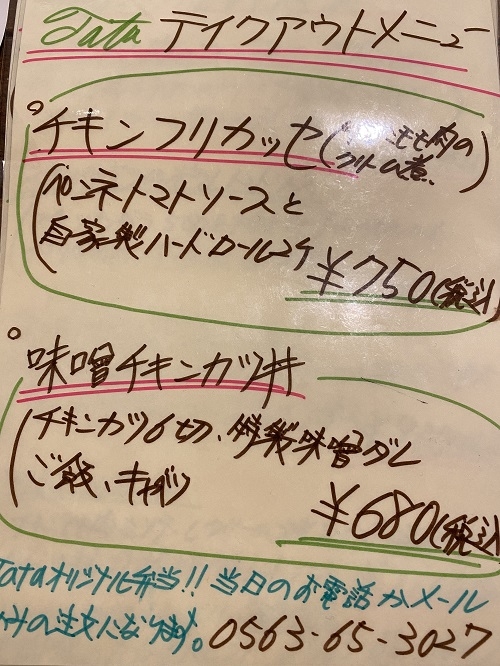 Tata テイクアウトメニュー
チキンフリカッセ(もも肉の
クリーム煮)
(ペンネトマトソースと
自家製ハードロール2ケ
¥750(税込)
味噌チキンカツ丼
(チキンカツ6切、特製味噌ダレ
ご飯、キャベツ)
¥680(税込)
Tataオリジナル弁当!! 当日のお電話かメール
のみの注文になります。0563-65-3027